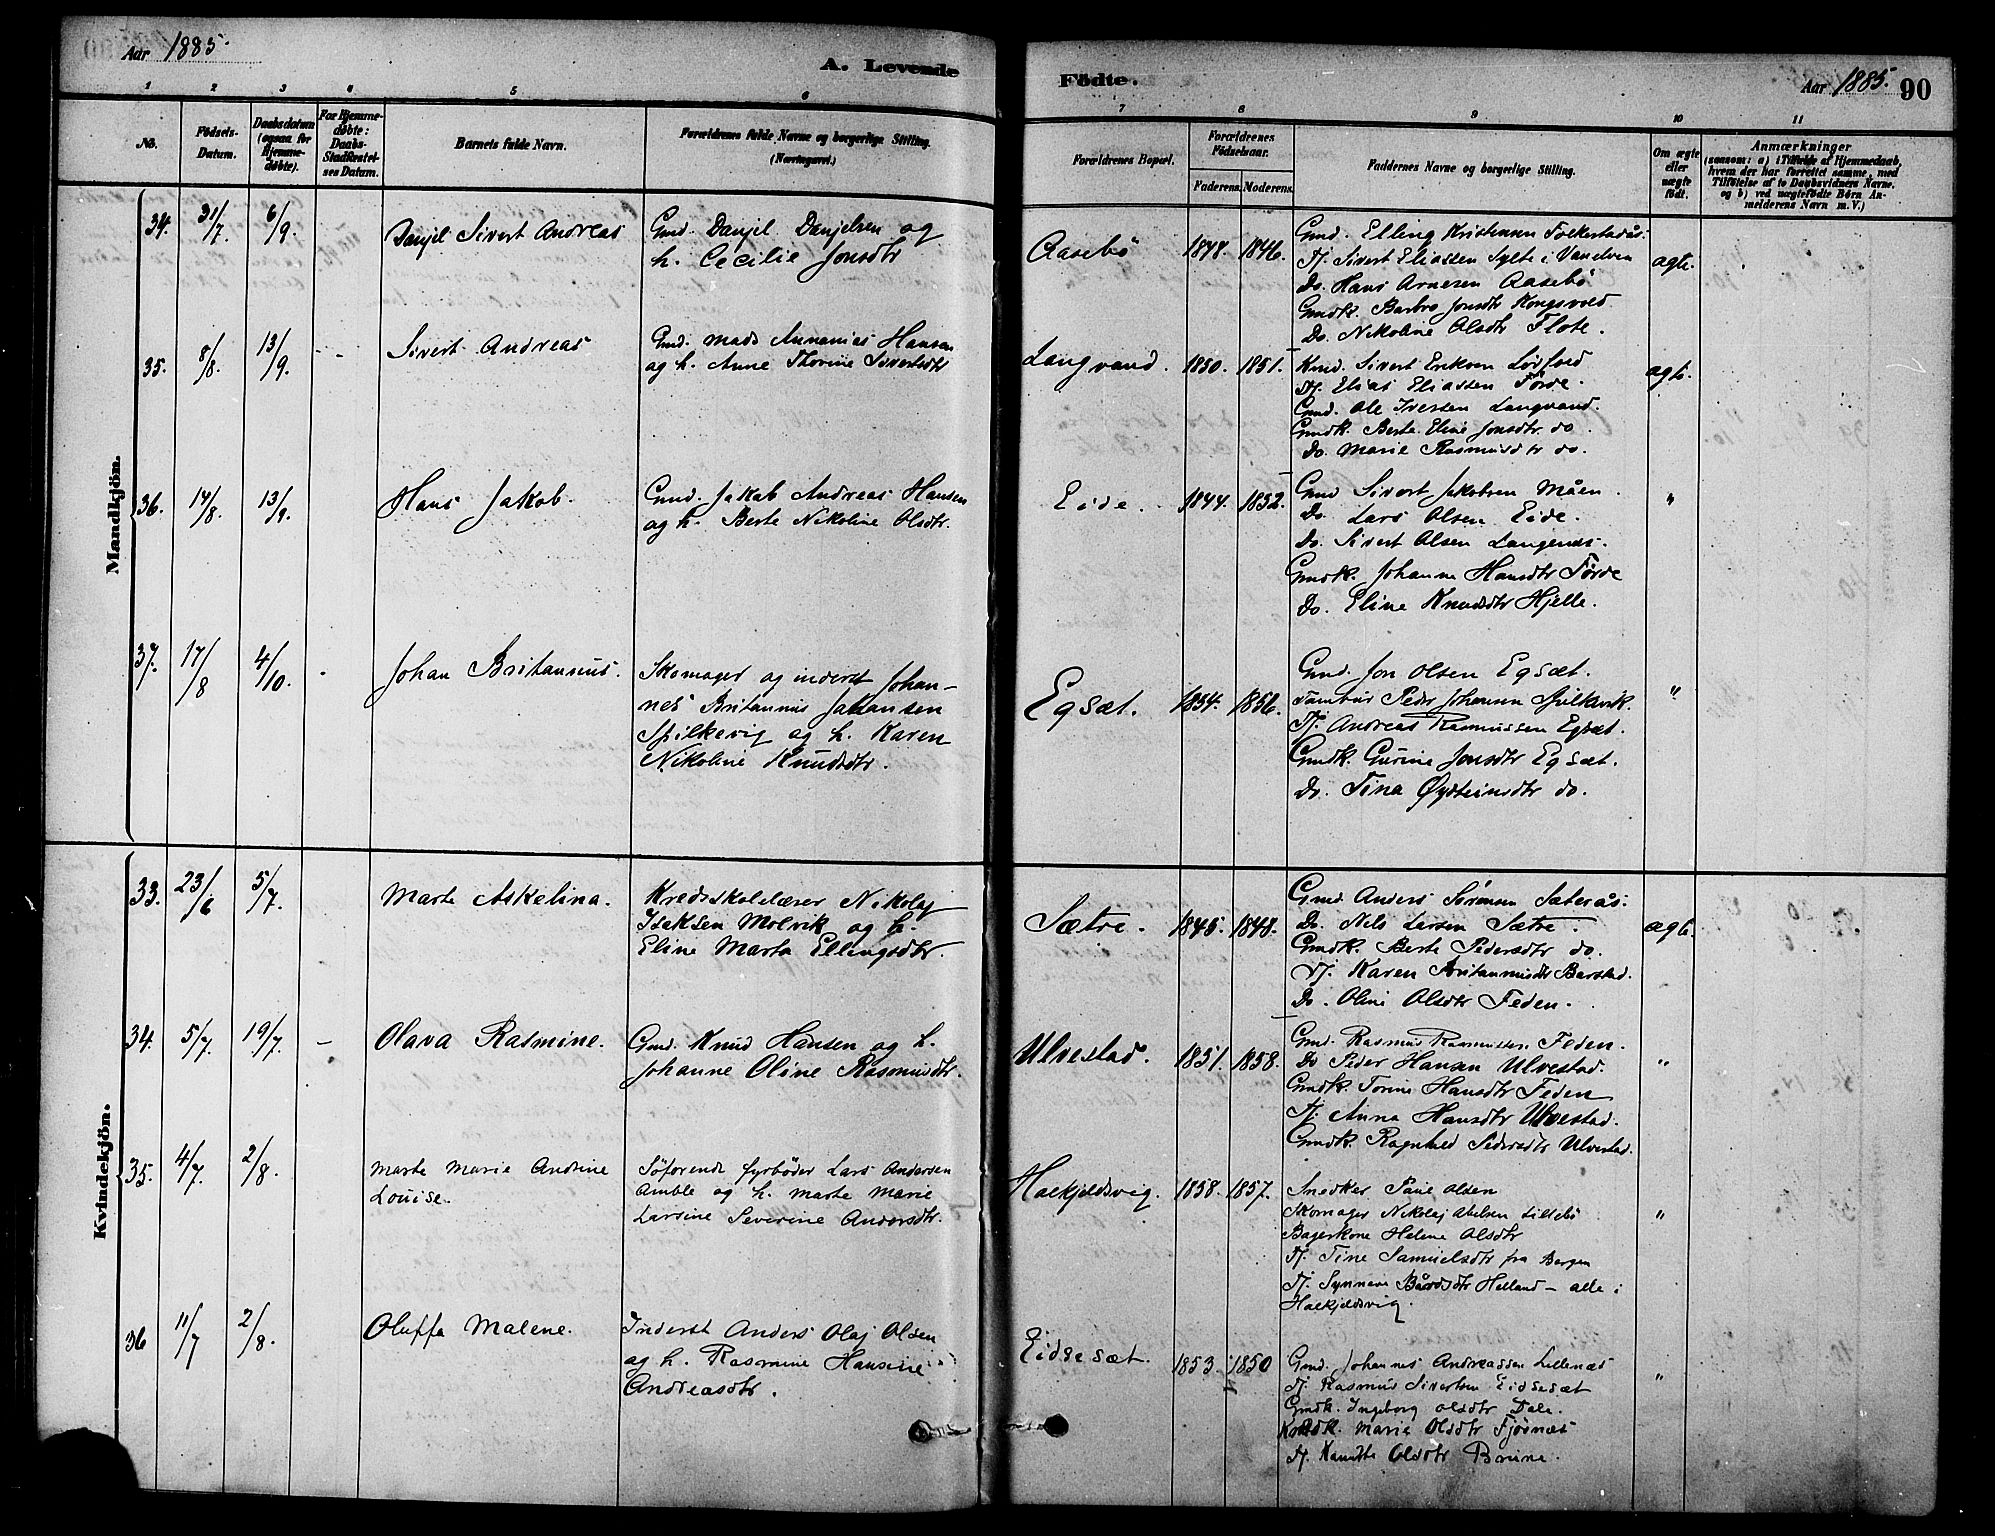 Aar 1885.
A. Levende
Födte.
Aar 1885.
90
1 2 3 4 5 6 7 8 9 10 11
No.
Födsels-
Datum.
Daabsdatum
(ogsaa for
Hjemme-
døbte).
For Hjemme-
døbte:
Daabs-
Stadfæstel-
ses Datum.
Barnets fulde Navn.
Forældrenes fulde Navne og borgerlige Stilling.
(Næringsvei.)
Forældrenes Bopæl.
Forældrenes
Födselsaar.
Faderens. Moderens.
Faddernes Navne og borgerlige Stilling.
Om ægte
eller
uægte
født.
Anmærkninger
(saasom: a) i Tilfælde af Hjemmedaab,
hvem der har forrettet samme, med
Tilföielse af to Daabsvidners Navne,
og b) ved uægtefödte Börn An-
melderens Navn m. V.)
Mandkjön.
34. 31/7 6/9 Danjel Sivert Andreas
Gmd. Danjel Danjelsen og
h. Cecilie Jonsdtr
Aasebö 1848. 1846.
Gmd. Elling Kristensen Folkestadås.
Sivert Eliassen Sylte i Vanelven
Do. Hans Arnesen Aasebö
Gmdk. Barbro Jonsdtr Kongsvold
Do. Nikoline Olsdtr Flote.
ægte.
35. 8/8. 13/9. - - Sivert Andreas
Gmd. Mads Annanias Hansen
og h. Anne Thorine Sivertsdtr
Langvand. 1850. 1851.
Sivert Eriksen
Elias Eliassen Förde.
Gmd. Ole Iversen Langvand.
Gmdk. Berte Eline Jonsdtr do.
Do. Marie Rasmusdtr do.
ægte.
36. 14/8. 13/9. Hans Jakob.
Gmd. Jakob Andreas Hansen
og h. Berte Nikoline Olsdtr.
Eide. 1844. 1852.
Gmd Sivert Jakobsen Måen.
Do. Lars Olsen Eide.
Do. Sivert Olsen Langenes.
Gmdk. Johanne Hansdtr Förde
Do. Eline Knudsdtr Hjelle.
"
37. 17/8 4/10. - Johan Britannus.
Skomager og inderst Johan-
nes Britannus Johansen
Spilkevig og h. Karen
Nikoline Knudsdtr.
Egsæt. 1854. 1856.
Gmd. Jon Olsen Egsæt.
Tambur Peder Johansen Spilkevik.
Andreas Rasmussen Egsæt.
Gmdk. Gurine Jonsdtr Egsæt.
Do. Tina Øysteinsdtr do.
"
Kvindekjön.
33. 23/6 5/7. Marte Askelina.
Kredsskolelærer Nikolaj
Isaksen Molvik og h.
Eline Marta Ellingsdtr.
Sætre. 1845. 1848.
Gmd Anders Sörensen Sæterås.
Do. Nils Larsen Sætre.
Gmdk. Berte Pedersdtr do.
Karen Britannusdtr Barstad.
Do. Oline Olsdtr Feden.
ægte.
34. 5/7. 19/7. - Olava Rasmine.
Gmd. Knud Hansen og h.
Johanne Oline Rasmusdtr.
Ulvestad. 1851. 1858.
Gmd. Rasmus Rasmussen Feden.
Do Peder Hansen Ulvestad.
Gmdk. Torine Hansdtr Feden
Anna Hansdtr Ulvestad.
Gmdk. Ragnhild Pedersdtr Ulvestad.
"
35. 4/7. 2/8. Marte Marie Andrine
Louise.
Söfarende fyrböder Lars Andersen
Amble og h. Marte Marie
Larsine Severine Andersdtr.
Hækjeldsvig. 1858. 1857.
Snedker Paul Olsen
Skomager Nikolaj Abelsen Lillebö
Bagerkone Helene Olsdtr
Tine Samuelsdtr fra Bergen
Synneve Bårdsdtr Helland - alle i
Hækjeldsvig.
"
36 11/7 2/8. Oluffa Malene.
Inderst Anders Olaj Olsen
og h. Rasmine Hansine
Andreasdtr.
Eidsesæt. 1853. 1850
Gmd. Johannes Andreassen Lillenæs
Rasmus Sivertsen Eidsesæt
Gmdk. Ingeborg Olsdtr Dale.
Marie Olsdtr Fjörnes
Olsdtr Brune.
"